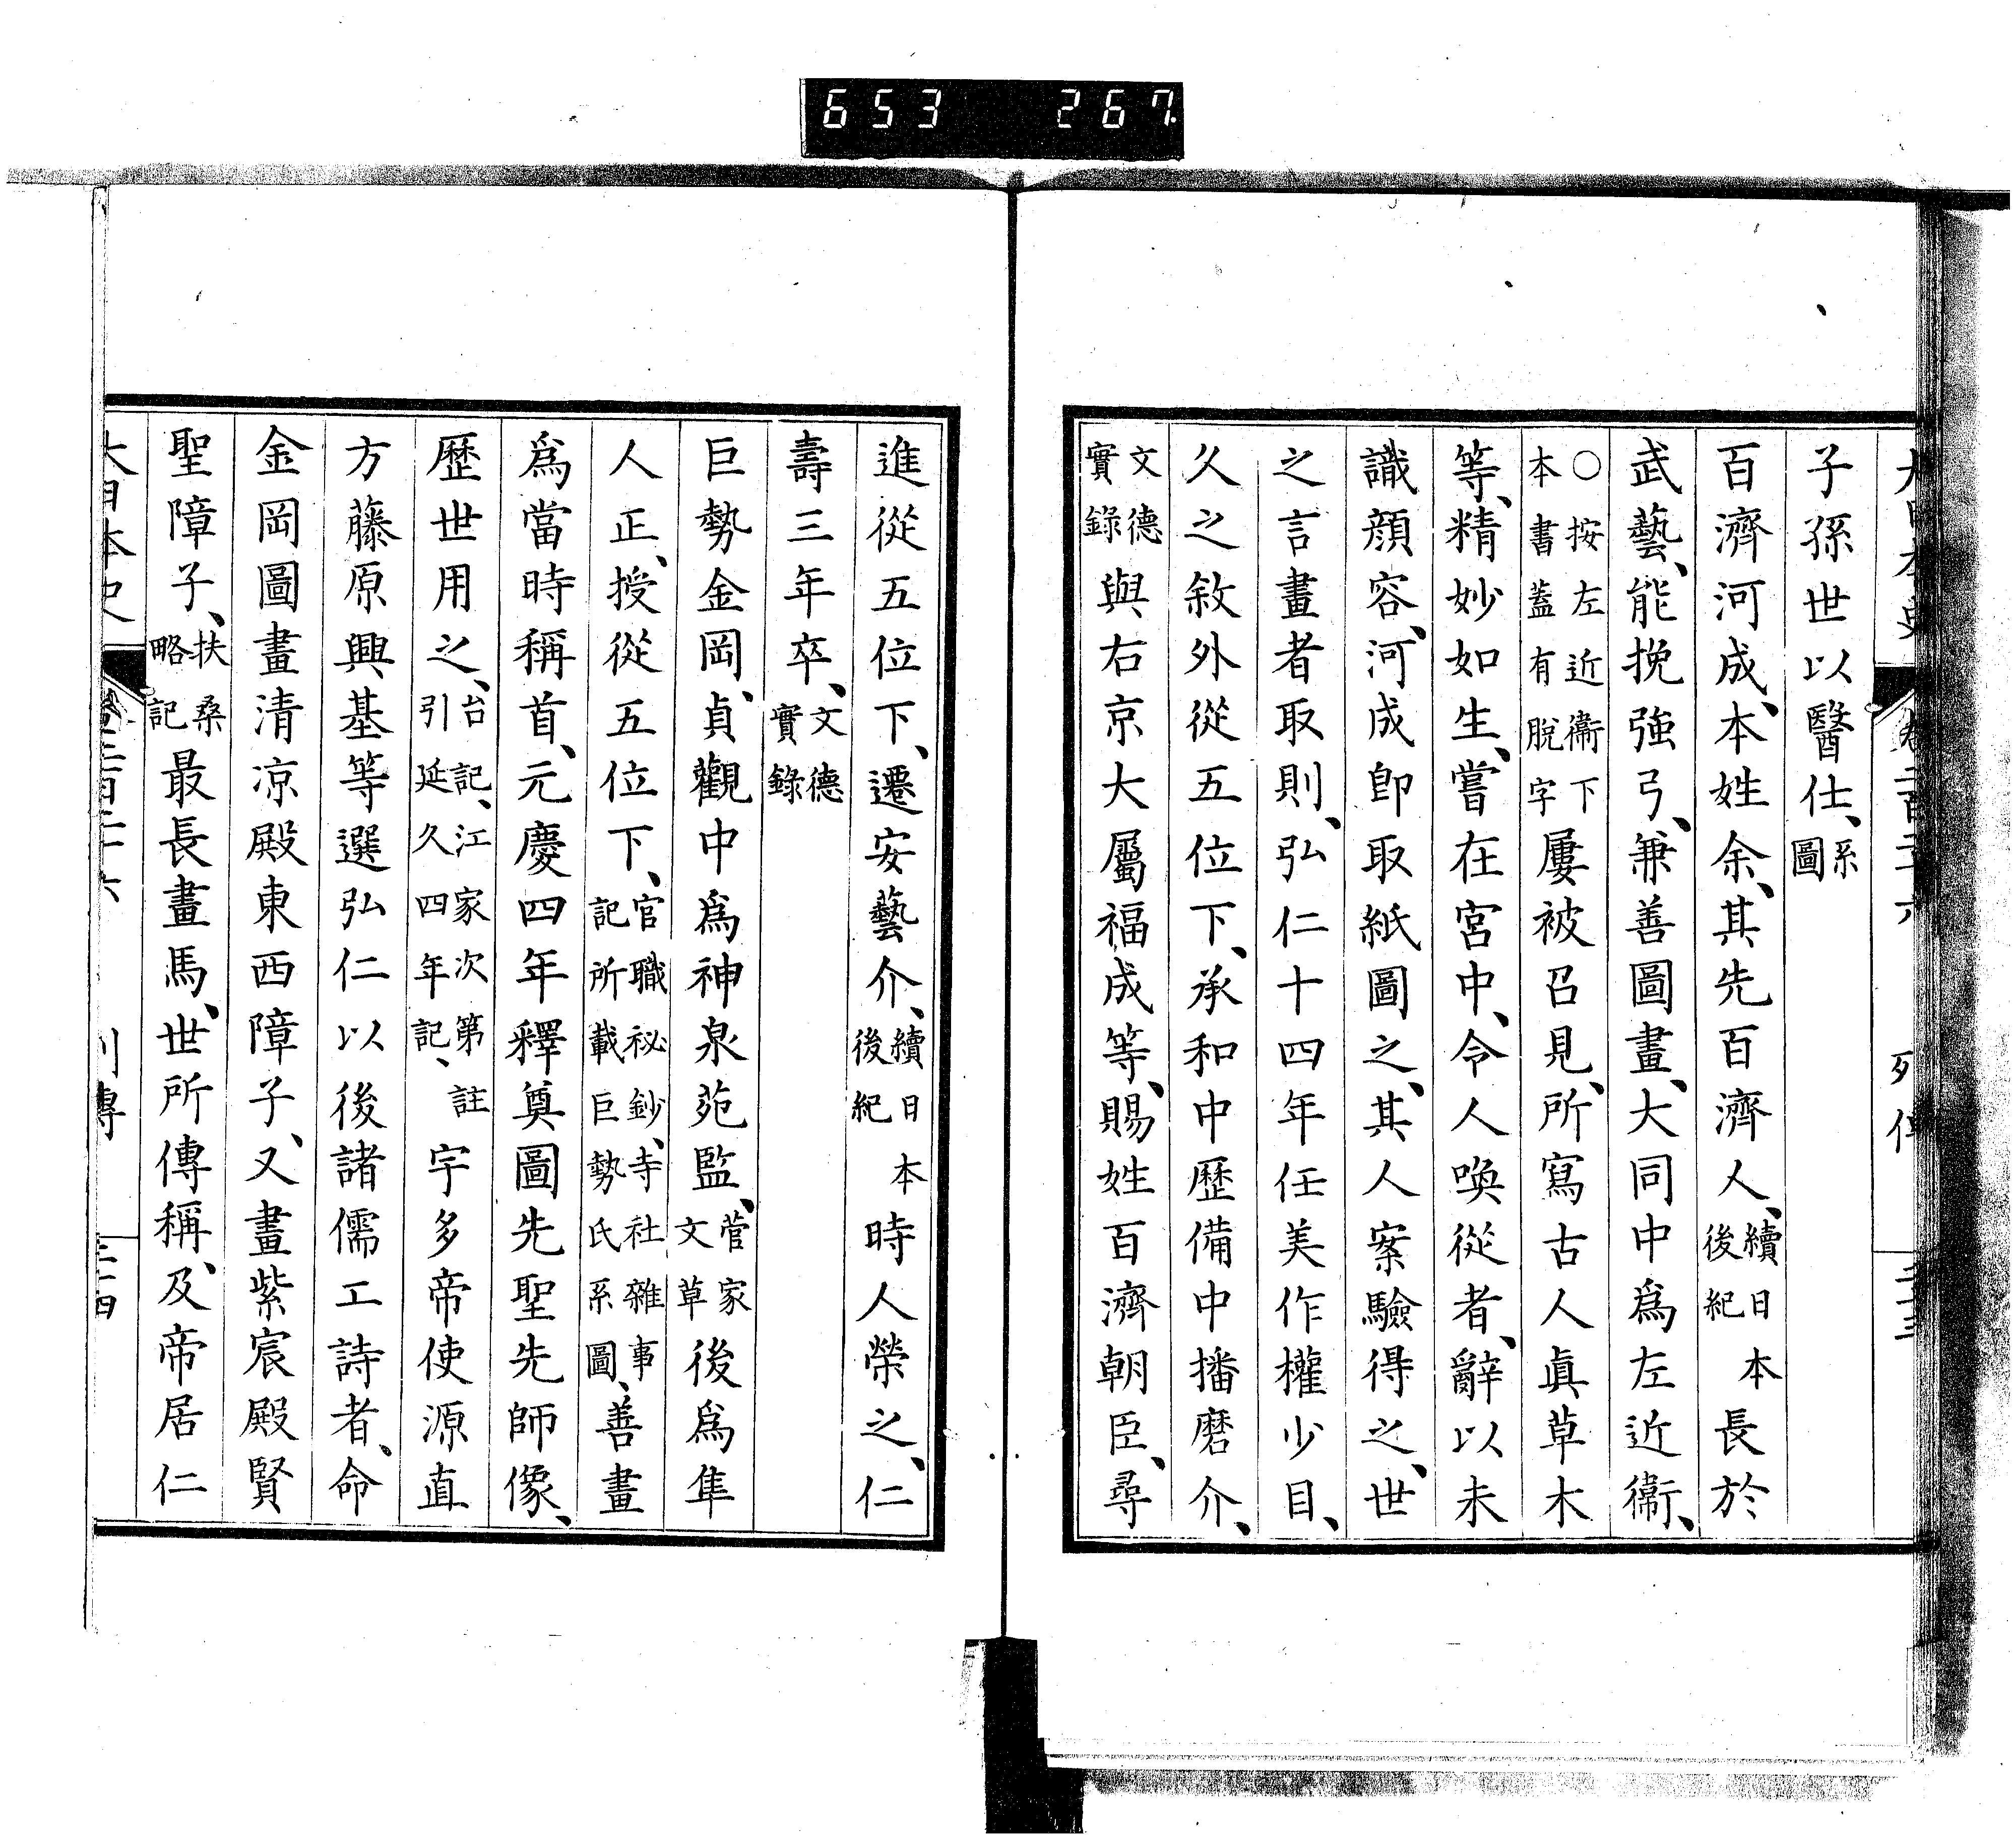 653 267
大日本史 卷二百二十六 列傳 二十三
子孫世以醫仕、系圖
百濟河成、本姓余、其先百濟人、續日本後紀長於
武藝、能挽強弓、兼善圖畫、大同中爲左近衞、
○按左近衞下本書蓋有脫字屢被召見、所寫古人眞草木
等、精妙如生、嘗在宮中、令人喚從者、辭以未
識顏容、河成卽取紙圖之、其人案驗得之、世
之言畫者取則、弘仁十四年任美作權少目、
久之敘外從五位下、承和中歷備中播磨介、
文德實錄與右京大屬福成等、賜姓百濟朝臣、尋
進從五位下、遷安藝介、續日本後紀時人榮之、仁
壽三年卒、文德實錄
巨勢金岡、貞觀中爲神泉苑監、菅家文草後爲隼
人正、授從五位下、官職祕鈔、寺社雜事記所載巨勢氏系圖、善畫
爲當時稱首、元慶四年釋奠圖先聖先師像、
歷世用之、台記、江家次第註引延久四年記、宇多帝使源直
方藤原興基等選弘仁以後諸儒工詩者、命
金岡圖畫清涼殿東西障子、又畫紫宸殿賢
聖障子、扶桑略記最長畫馬、世所傳稱、及帝居仁
大日本史 卷二百二十六 列傳 二十四